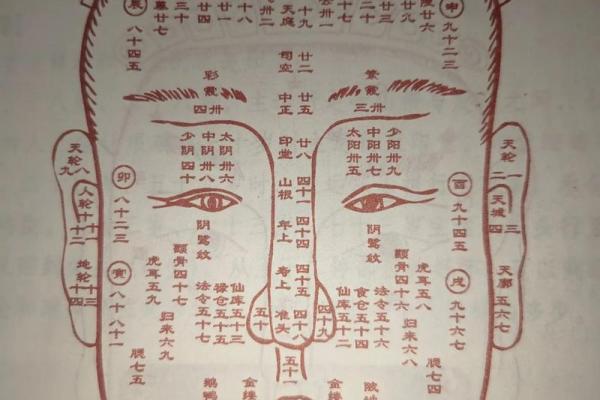 辰
八十四五
廿七
三十
廿一
十八
卅二
天庭
十九
卅一
十七
二十
廿三
廿九
廿六
申
九十二三
司空
廿二
中正
廿五
印堂
廿八
山根
四十一
年上
四十四
寿上
四十五
准头
四十八
彩霞
卅四
繁霞
卅三
太阴卅六
中阴卅八
少阴四十
太阳卅五
中阳卅七
少阳卅九
天轮
八九
人轮
十十一十二
地轮
十三十四
天轮
一二
天城
三四
天廓
五六七
卯
八十二三
寅
八十八十一
酉
九十四五
戌
九十六七
阴骘纹
阴骘纹
颧骨四十七
颧骨四十六
虎耳五九
虎耳五八
仙库五十三
禄仓五十五
法令五十七
仙库五十二
食仓五十四
法令五十六
归来六九
归来六八
五十
四十九
五十一
腮七五
腮七四
鹅鸭
金缕
金缕
陂池